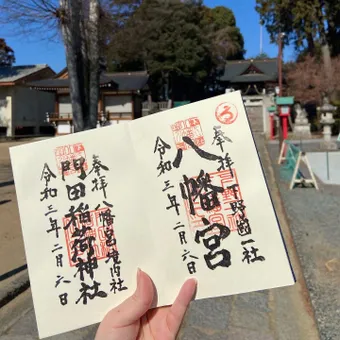 奉拝 下野国一社
八幡宮
令和三年二月六日
奉拝 八幡宮境内社
門田稲荷神社
令和三年二月六日